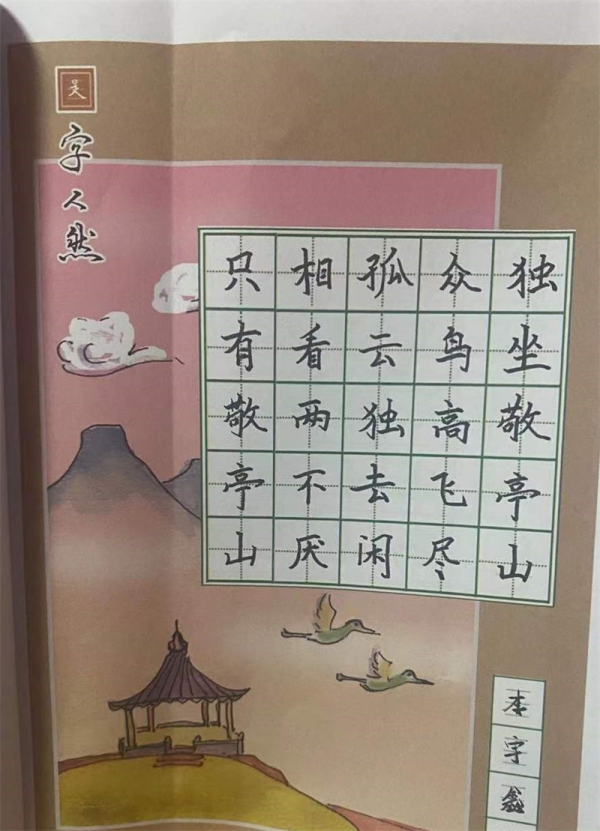 独坐敬亭山
众鸟高飞尽
孤云独去闲
相看两不厌
只有敬亭山
字人然